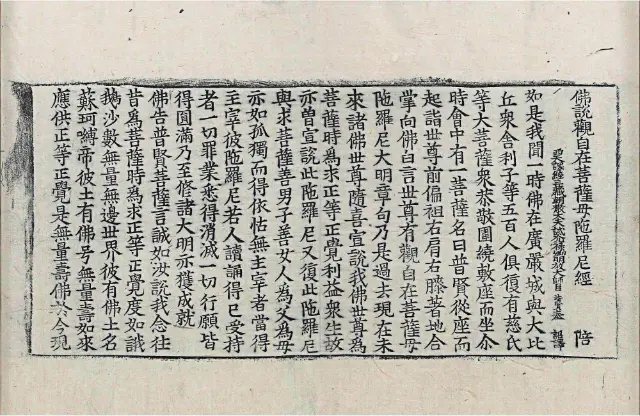 佛說觀自在菩薩母陁羅尼經 陪
如是我聞一時佛在廣嚴城與大比
丘衆舍利子等五百人俱復有慈氏
等大菩薩衆恭敬圍繞敷座而坐尒
時會中有一菩薩名曰普賢從座而
起詣世尊前偏袒右肩右膝著地合
掌向佛白言世尊有觀自在菩薩母
陁羅尼大明章句乃是過去現在未
來諸佛世尊隨喜宣說我佛世尊爲
菩薩時爲求正等正覺利益衆生故
亦曽宣說此陁羅尼又復此陁羅尼
與求菩薩善男子善女人爲父爲母
亦如孤獨而得依怙無主宰者當得
主宰彼陁羅尼若人讀誦得已受持
者一切罪業悉得消滅一切行願皆
得圓滿乃至修諸大明亦獲成就
佛告普賢菩薩言誠如汝說我念往
昔爲菩薩時爲求正等正覺度如誐
鵝沙數無量無邊世界彼有佛土名
蘇珂嚩帝彼土有佛号無量壽如來
應供正等正覺是無量壽佛於今現